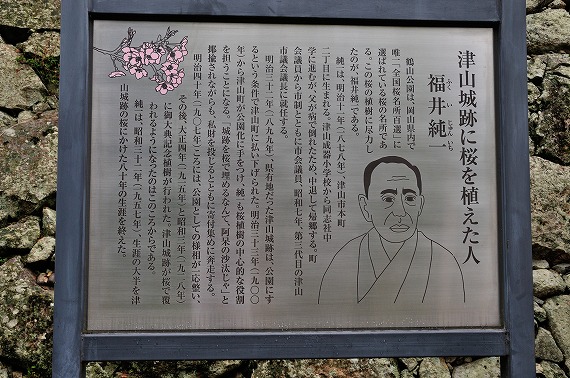 津山城跡に桜を植えた人
福井純一
ふくいじゅんいち
鶴山公園は、岡山県内で
唯一、全国桜名所百選」に
選ばれている桜の名所であ
る。この桜の植樹に尽力し
たのが、福井純一である。
純一は、明治十一年(一八七八年)、津山市本町
二丁目に生まれる。津山成器小学校から同志社中
学に進むが、父が病で倒れたため、中退して帰郷する。町
会議員から市制とともに市会議員、昭和七年、第三代目の津山
市議会議長に就任する。
明治三十二年(一八九九年)、県有地だった津山城跡は、公園にす
るという条件で津山町に払い下げられた。明治三十三年(一九〇〇
年)から津山町が公園化に手をつけ、純一も桜植樹の中心的な役割
を担うことになる。「城跡を桜で埋めるなんて、阿呆の沙汰じゃ」と
揶揄されながらも、私財を投じるとともに寄付集めに奔走する。
明治四十年(一九〇七年)ごろには、公園としての様相が一応整い、
その後、大正四年(一九一五年)と昭和三年(一九二八年)
に御大典記念植樹が行われた。津山城跡が桜で覆
われるようになったのはこのころからである。
純一は、昭和三十二年(一九五七年)、生涯の大半を津
山城跡の桜にかけた八十年の生涯を終えた。